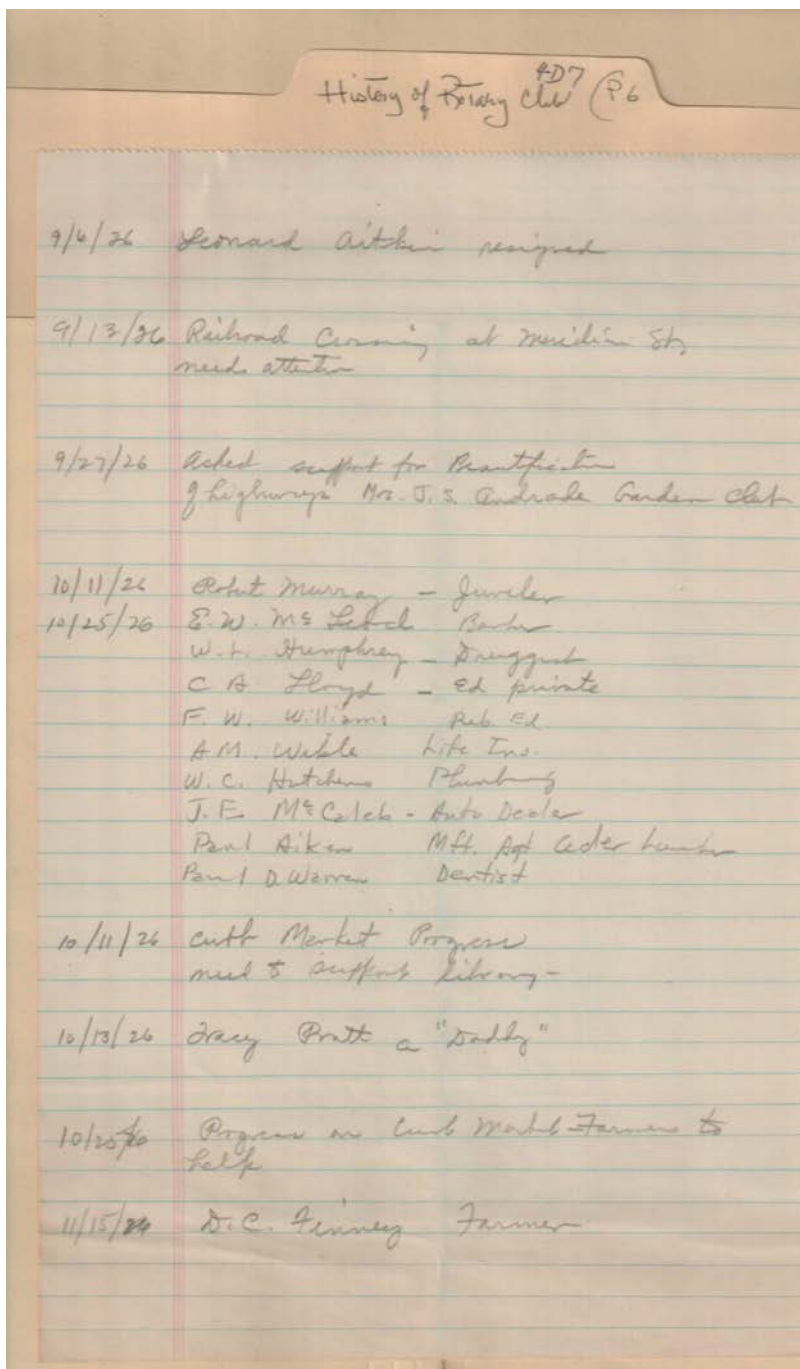 History of Rotary Club 4D7 (P6
9/6/26 Leonard Aitken resigned
9/13/26 Railroad Crossing at Meridian St,
needs attention
9/27/26 Asked support for Beautification
of highways Mrs. J. S. Andrade Garden Club
10/11/26 Robert Murray - Juweler
10/25/26 E. W. Mc Leod
W. L. Humphrey - Druggist
C A Lloyd - Ed private
F. W. Williams Pub. Ed.
A M. Wible Life Ins.
W. C. Hutchens Plumbing
J. E. McCaleb - Auto Dealer
Paul Aiken Mft. Agt Ceder Lumber
Paul D. Warren Dentist
10/11/26 Curb Market Progress
need to support library -
10/13/26 Tracy Pratt a "Daddy"
10/25/26 Progress on Curb Market - Farmers to
help
11/15/26 D. C. Finney Farmer